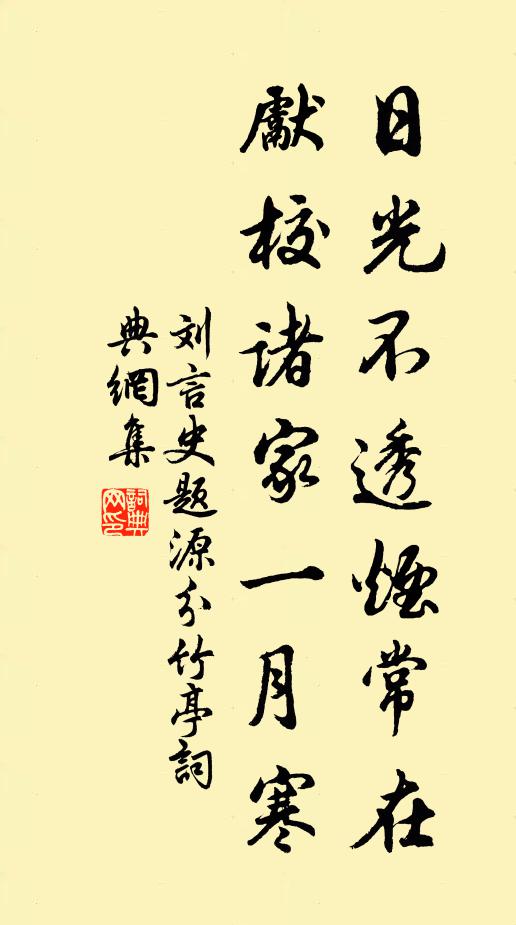 日光不透煙常在
獻校诸家一月寒
刘言史题源分竹亭詞
典網集
詞典
网印